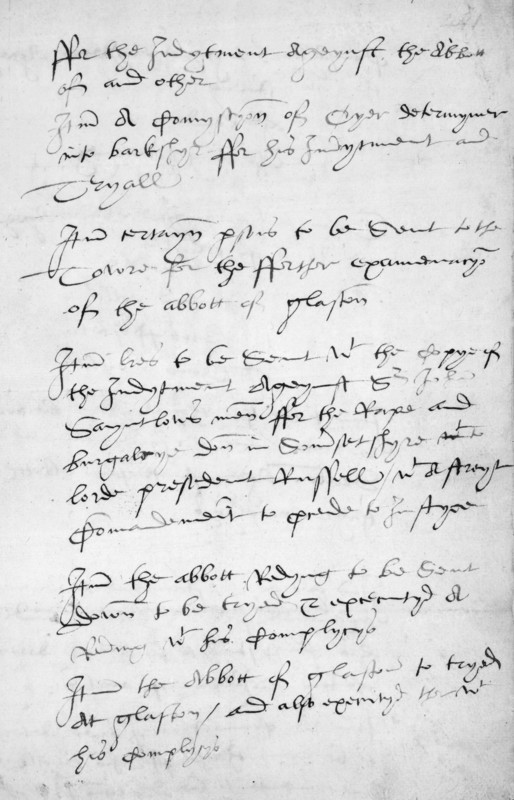 ffor the Indytment Ageynst the Abbott
of and other
Itm A Comyssyon of Oyer determyner
into barkshyr ffor his Indytment and
Tryall
Itm certayn psons to be Sent to the
Towre for the fferther examenacyon
of the abbott of glaston
Itm lres to be Sent wt the Copye of
the Indytment Ageynst Sr John
Sayntlows men ffor the Rape and
burgalrye don in Somersetshyre to
lorde president Russell / wt A streyt
Comandement to pcede to Justyce
Itm the abbott Redyng to be Sent
down to be tryed & executyd A
Redyng wt his Complycys
Itm the Abbott of glaston to tryed
At glaston / and also executyd ther wt
his Complycys